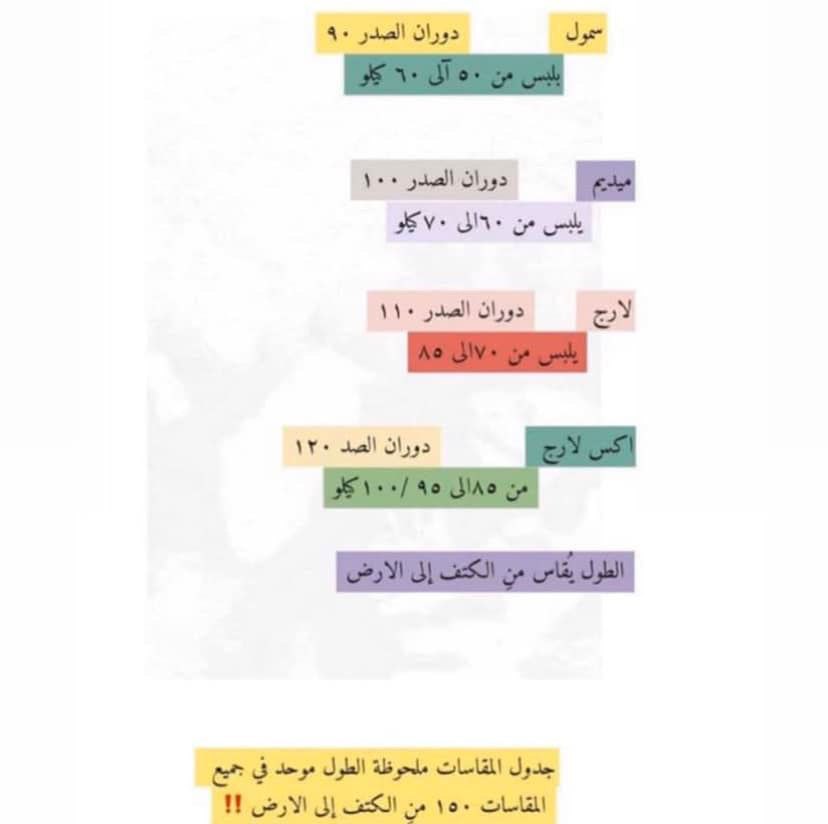 سمول دوران الصدر ٩٠
يلبس من ٥٠ آلى ٦٠ كيلو
ميديم دوران الصدر ١٠٠
يلبس من ٦٠الى ٧٠كيلو
لارج دوران الصدر ١١٠
يلبس من ٧٠الى ٨٥
اكس لارج دوران الصد ١٢٠
من ٨٥الى ٩٥ /١٠٠كيلو
الطول يُقاس منِ الكتف إلى الارض
جدول المقاسات ملحوظة الطول موحد في جميع
المقاسات ١٥٠ منِ الكتف إلى الارض ‼️